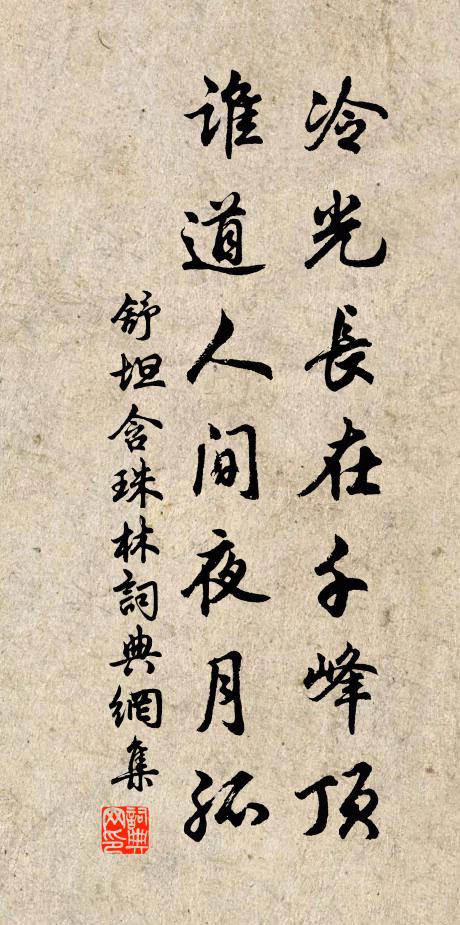 冷光長在千峰頂
誰道人间夜月孤
舒坦含珠林詞典網集
詞典网印